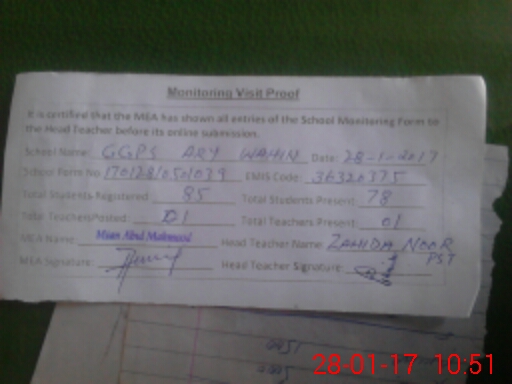 Monitoring Visit Proof
It is certified that the MEA has shown all entries of the School Monitoring Form to
the Head Teacher before its online submission.
School Name: GGPS ARY WAHIN Date: 28-1-2017
School Form No 17012810501039 EMIS Code: 36320375
Total Students Registered: 85 Total Students Present: 78
Total Teachers Posted: 01 Total Teachers Present: 01
MEA Name: Mian Abdul Head Teacher Name: ZAHIDA NOOR
PST
MEA Signature: Head Teacher Signature:
28-01-17 10:51